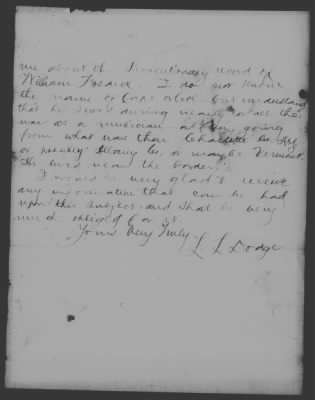 me about the Revolutionary record of
William Fosdick. I do not know
the name of Capt or Col but understand
that he served during nearly or all the
war as a musician
from what was then Charlotte Co. NY
or possibly Albany Co., or maybe Vermont
He lived near the border.
I would be very glad to receive
any information that can be had
upon this subject, and shall be very
much obliged for it.
Yours Very Truly
L. L. Dodge